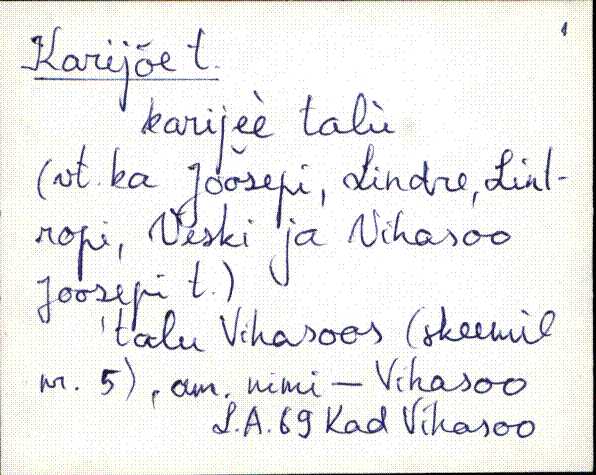 1
Karijõe t.
karijèè talù
(vt. ka Jo̬o̬sepi, Lindre, Lint-
ropi, Veski ja Vihasoo
Joosepi t.)
talu Vihasoos (skeemil
nr. 5), am. nimi — Vihasoo
L.A. 69 Kad Vihasoo